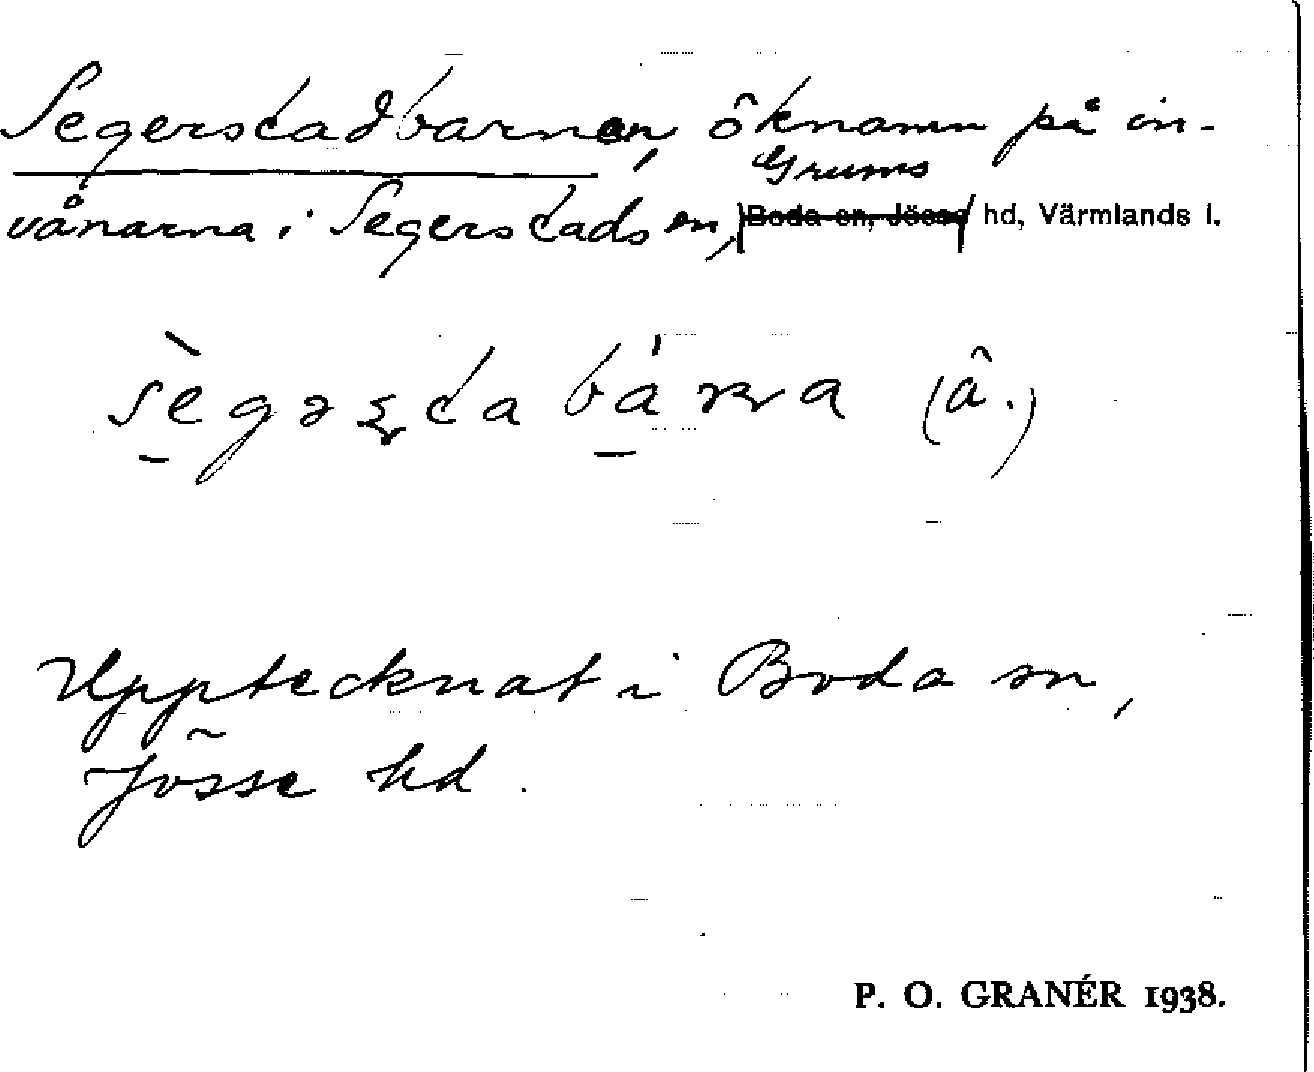 Segerstadbarnen, öknamn på in-
vånarna i Segerstads sn, Grums ~~Boda sn, Jösse~~ hd, Värmlands l.
(â.)
Upptecknat i Boda sn,
Jösse hd.
P. O. GRANÉR 1938.